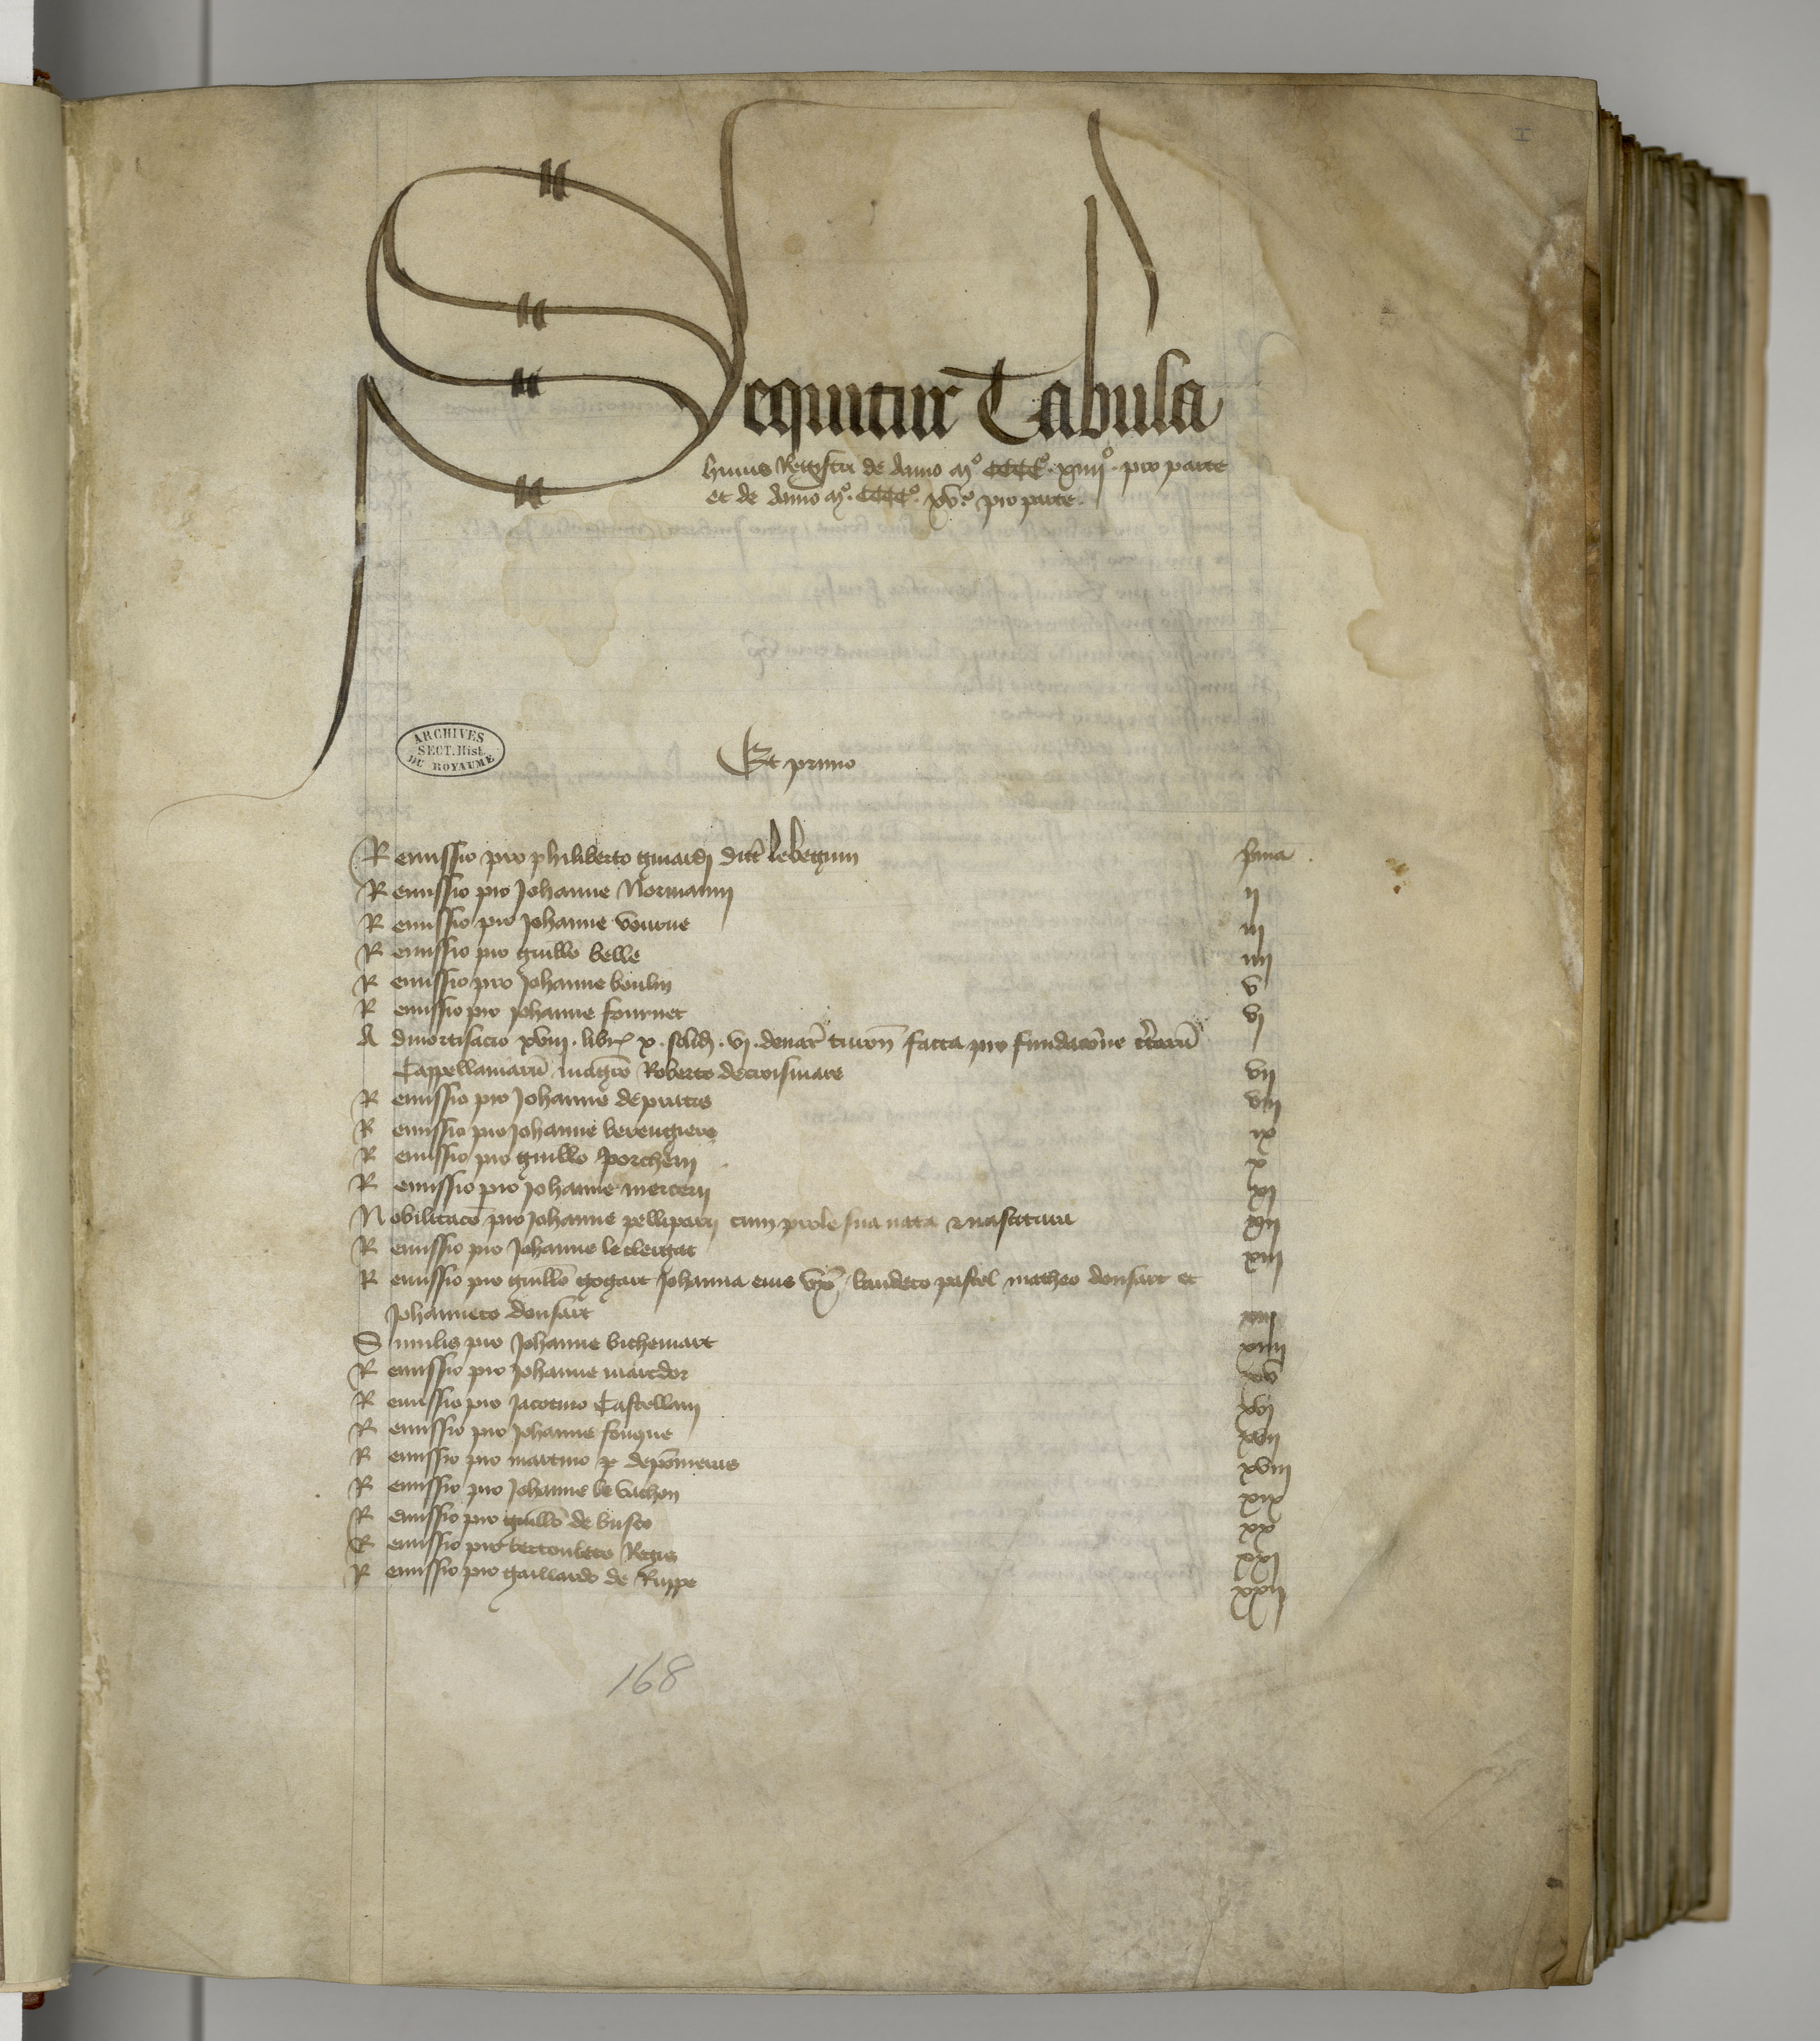 I
Sequitur Tabula
huius Registri de Anno mº CCCCº. xiiijº. pro parte
et de Anno mº. CCCCº. xvº. pro parte.
ARCHIVES
SECT. Hist.
DU ROYAUME
Et primo
Remissio pro philiberto guiardi dict lebegum prima.
Remissio pro Johanne Normanni ij
Remissio pro Johanne iij
Remissio pro guillo belle iiij
Remissio pro Johanne boulin v
Remissio pro Johanne fournet vj
Admortisacio xviij. libr x. solid. vj. denar turon facta pro fundacione certarum
Cappellaniarum magro Roberto decroismare vij
Remissio pro Johanne depratis viij
Remissio pro Johanne berengiere ix
Remissio pro guillo porcherij x
Remissio pro Johanne mercerij xj
Nobilitacio pro Johanne pelliparij cum prole sua nata & nascitura xij
Remissio pro Johanne leclergat xiij
Remissio pro guillo gogart Johanna eius uxor baudeto pastel matheo donsart et
Johanneto donsart
Similis pro Johanne bichemart xiiij
Remissio pro Johanne marcdor xv
Remissio pro Jacotino Castellani xvj
Remissio pro Johanne fouque xvij
Remissio pro martino xviij
Remissio pro Johanne le vachon xix
Remissio pro guillo de busco xx
Remissio pro bertouleto Regis xxj
Remissio pro gaillardo de Ruppe xxij
168